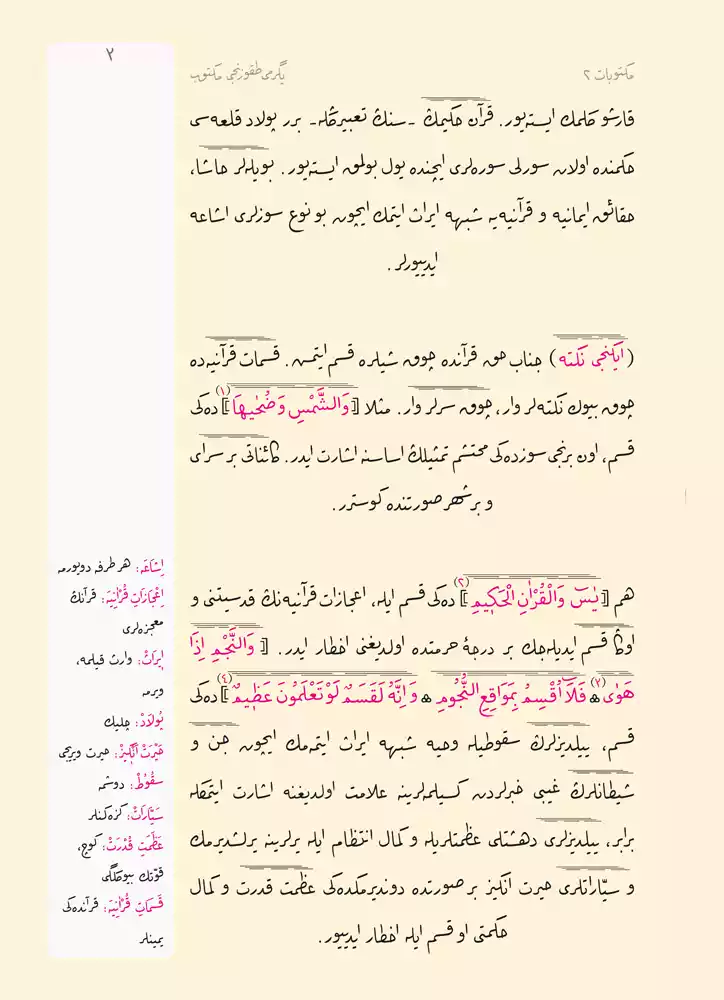 مكتوبات ٢
يگرمی طقوزنجی مكتوب
٢
قارشو كلمك ايسته‌يور. قرآن حكيمڭ -سنڭ تعبيرڭله- برر پولاد قلعه‌سی
حكمنده اولان سورلی سوره‌لری ايچنده يول بولمق ايسته‌يور. بويله‌لر حاشا،
حقائق ايمانيه و قرآنيه‌يه شبهه ايراث ايتمك ايچون بو نوع سوزلری اشاعه
ايدييورلر.
(ايكنجی نكته) جناب حق قرآنده چوق شيلره قسم ايتمش. قسمات قرآنيه‌ده
چوق بيوك نكته‌لر وار، چوق سرلر وار. مثلا [وَالشَّمْسِ وَضُحٰيهَا](١) ده‌كی
قسم، اون برنجی سوزده‌كی محتشم تمثيلڭ اساسنه اشارت ايدر. كائناتی بر سرای
و بر شهر صورتنده كوسترر.
هم [يٰسٓ وَالْقُرْاٰنِ الْحَكِيمِ](٢) ده‌كی قسم ايله، اعجازات قرآنيه‌نڭ قدسيتنی و
اوڭا قسم ايديله‌جك بر درجۀ حرمتده اولديغنی اخطار ايدر. [وَالنَّجْمِ اِذَا
هَوٰى](٣) ❁ فَلَٓا اُقْسِمُ بِمَوَاقِعِ النُّجُومِ ❁ وَاِنَّهُ لَقَسَمٌ لَوْ تَعْلَمُونَ عَظِيمٌ](٤) ده‌كی
قسم، ييلديزلرڭ سقوطيله وحيه شبهه ايراث ايتمه‌مك ايچون جن و
شيطانلرڭ غيبی خبرلردن كسيلمه‌لرينه علامت اولديغنه اشارت ايتمكله
برابر، ييلديزلری دهشتلی عظمتلريله و كمال انتظام ايله يرلرينه يرلشديرمك
و سيّاراتلری حيرت انگيز بر صورتده دونديرمكده‌كی عظمت قدرت و كمال
حكمتی او قسم ايله اخطار ايدييور.
اِشَاعَه: هر طرفه دويورمه
اِعْجَازَاتِ قُرْاٰنِيَه: قرآنڭ
معجزه‌لری
اِيرَاثْ: وارث قيلمه،
ويرمه
پُولَادْ: چليك
حَيْرَتْ اَنْگِيزْ: حيرت ويريجی
سقُوطْ: دوشمه
سَيَّارَاتْ: گزه‌گنلر
عَظَمَتِ قُدْرَتْ: گوچ،
قوّتڭ بيوكلگی
قَسَمَاتِ قُرْاٰنِيَه: قرآنده‌كی
يمينلر